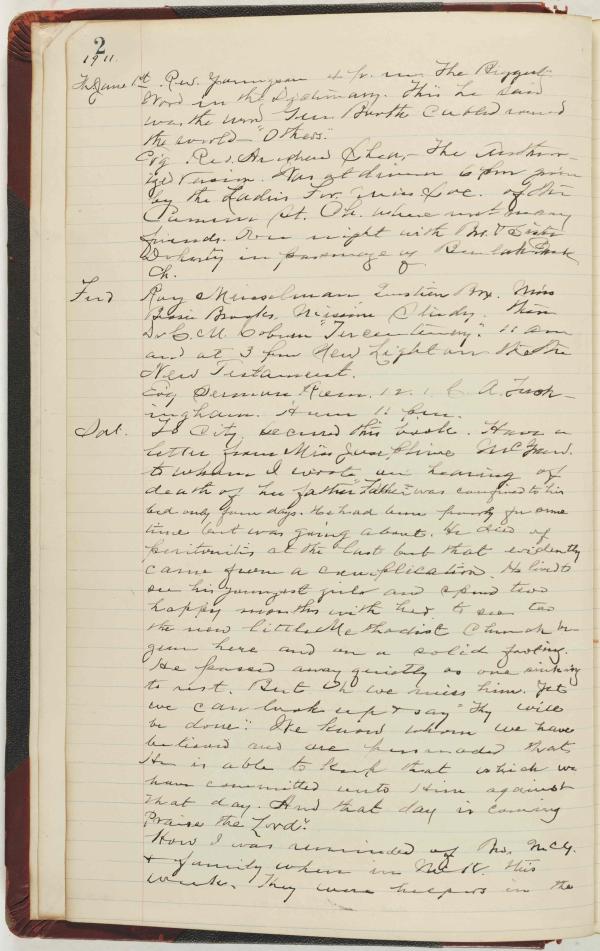 2
1911.
Th. June 1st. Rev. Youngson 4 p.m. The Biggest
Word in the Dictionary. This he said
was the word Gen Booth Cabled round
the world - "Others".
Evg. Rev. Andrew Shea, - The Author-
ized Version. Was at dinner 6 pm given
by the Ladies For. Miss. Soc. of the
St. Ch. where met many
friends. Over night with Bro. & Sister
Doherty in parsonage of Beulah Park
Ch.
Frid Ray Musselman Question Box. Miss
Bessie Brooks, Mission Study. Then
Dr C. M. Coburn "Tercentenary". 11 am
and at 3 pm New Light on the
New Testament.
Evg Sermon Rom. 12.1. C. A. Tush-
ingham. Home 11 p.m.
Sat. To City, secured this book. Have a
letter from Miss Josephine McG
to whom I wrote on hearing of
death of her father "Father was confined to his
bed only four days. He had been poorly for some
time but was going about. He died of
peritonitis at the last but that evidently
came from a complication. He lived to
see his youngest girls and spend two
happy months with her, to see too
the new little Methodist Church be-
gun here and on a solid footing.
He passed away quietly as one sinking
to rest. But Oh we miss him. Yet
we can look up & say "Thy will
be done". We know whom we have
believed and are persuaded that
He is able to keep that which we
have committed unto Him against
that day. And that day is coming
Praise the Lord".
How I was reminded of Mr. McG.
& family when in McK. this
week. They were helpers in the